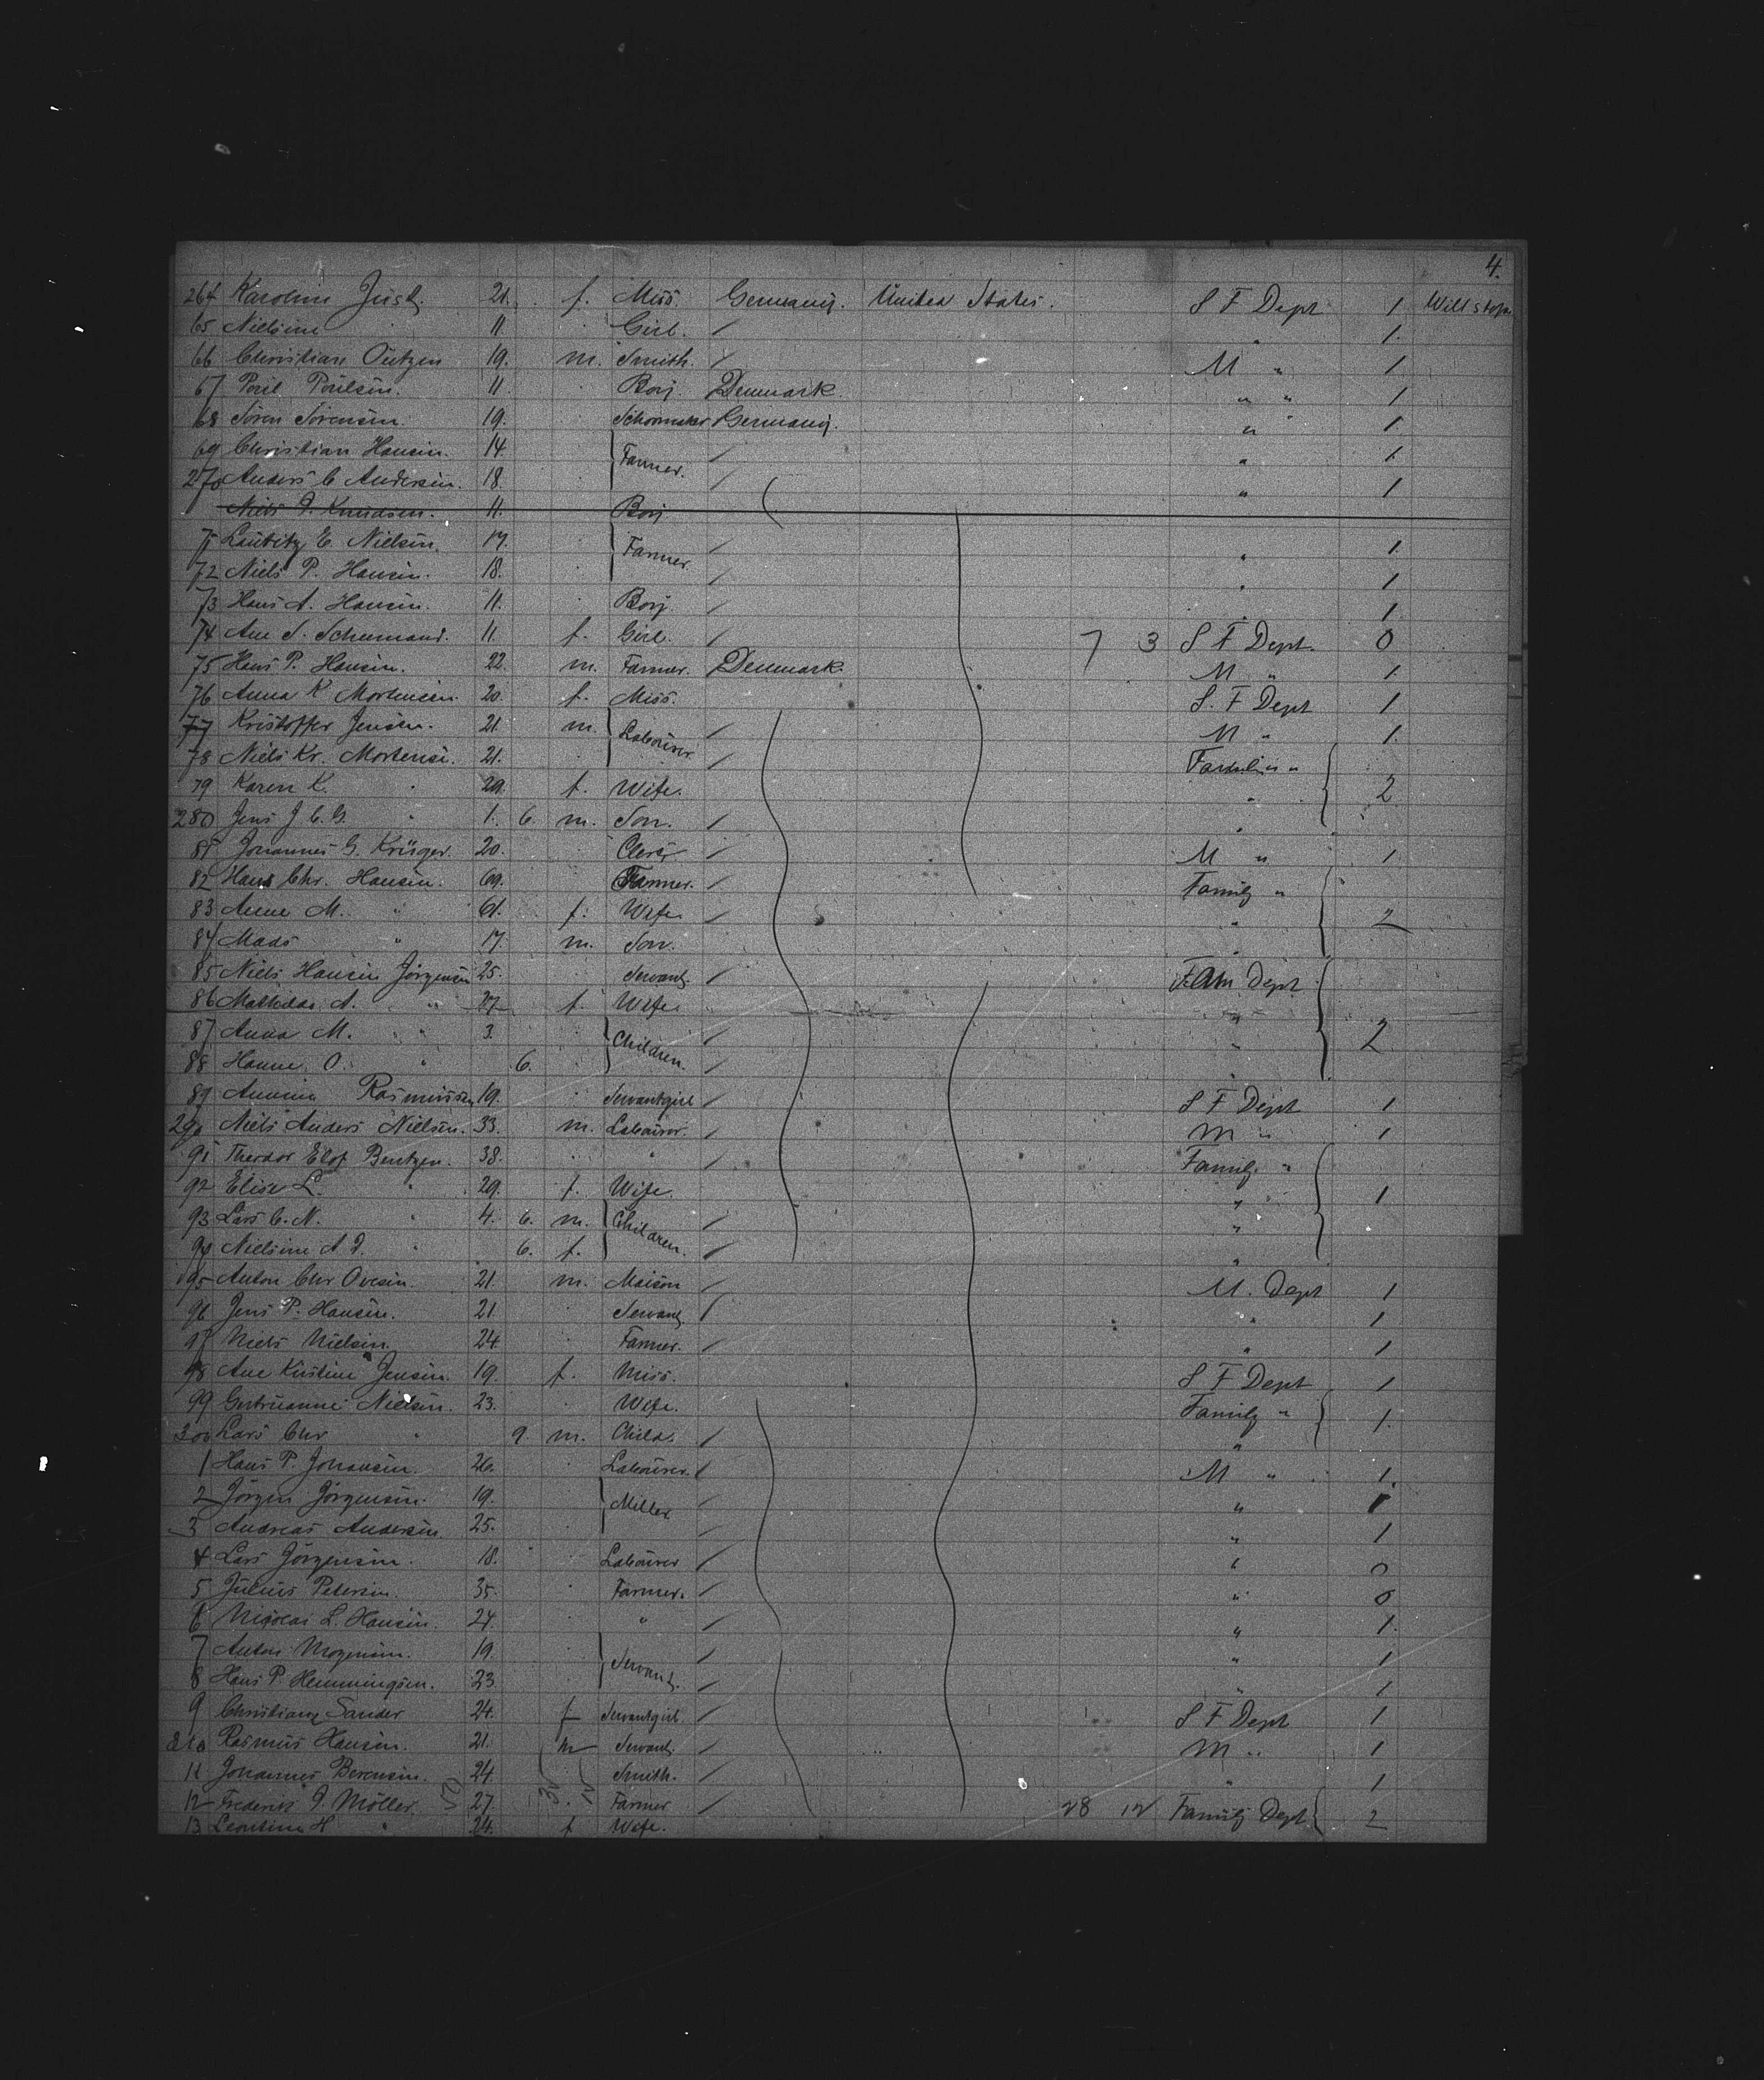 4.
264 Karoline Just. 21. f. Miss. Germany. United States. S F Dept 1 Will stop
65 Nielsine " 11. " Girl. " 1.
66 Christian Outzen 19. m. Smith. M " 1
67 Poul Poulsen. 11 " Boy. Denmark. " " 1
68 Sören Sörensen. 19. Schoomaker Germany. " 1.
69 Christian Hansen. 14. Farmer. " 1
270 Anders C Andersen. 18. " 1
Niels J. Knudsen. 11. Boy
71 Lauritz E. Nielsen. 17. Farmer. " 1
72 Niels P. Hansen. 18. " 1
73 Hans A. Hansen. 11. Boy. " 1.
74 Ane S. Schumand. 11. f. Girl. 7 3 S F Dept. 0
75 Hans P. Hansen. 22. m. Farmer. Denmark. M " 1
76 Anna K Mortensen. 20. f. Miss. S. F Dept 1
77 Kristoffer Jensen. 21. m. Labourer M " 1.
78 Niels Kr. Mortense. 21.
79 Karen K. " f. Wife. " 2
280 Jens J C. G. " 1. 6. m. Son. "
81 Johannes G. Krüger. 20. Clerk M " 1
82 Hans Chr. Hansen. 69. Farmer. Family "
83 Anne M. " 61. f. Wife " 2
84 Mads " 17. m. Son.
85 Niels Hansen Jörgensen 25. Servant. Fam Dept
86 Mathilde A. " 27 f. Wife "
87 Anna M. " 3. Children. " 2
88 Hanne O. " 6. "
89 Rasmussen 19. Servantgirl S F Dept 1
290 Niels Anders Nielsen. 33. m. Labourer. M " 1
91 Theodor Elof Bentzen. 38. " Family "
92 Elise L. " 29. f. Wife. " 1
93 Lars C. N. " 4. 6. m. Children. "
94 Nielsine A J. " 6. f. "
95 Anton Chr Ovesen. 21. m. Maison M. Dept 1
96 Jens P. Hansen. 21 Servant " 1
97 Niels Nielsen. 24. Farmer. " 1
98 Ane Kirstine Jensen. 19. f. Miss. S F Dept 1
99 Nielsen. 23. Wife. Family " 1.
300 Lars Chr " 9. m. Child. "
1 Hans P. Johansen. 26. Labourer. M " 1.
2 Jörgen Jörgensen. 19. Miller " 1
3 Andreas Andersen. 25. " 1
4 Lars Jörgensen. 18. Labourer " 0
5 Julius Petersen. 35. Farmer. " 0
6 Nicolai L. Hansen. 24. " " 1.
7 Anton Mogensen. 19. Servant. " 1
8 Hans P. Hemmingsen. 23 " 1
9 Sander 24. f Servantgirl. S F Dept 1
310 Rasmus Hansen. 21. m Servant. M " 1
11 Johannes Berensen. 24. Smith. " 1
12 Frederik J. Möller. 27. Farmer 28 12 Family Dept 2
13 Leontine H " 24. f Wife.